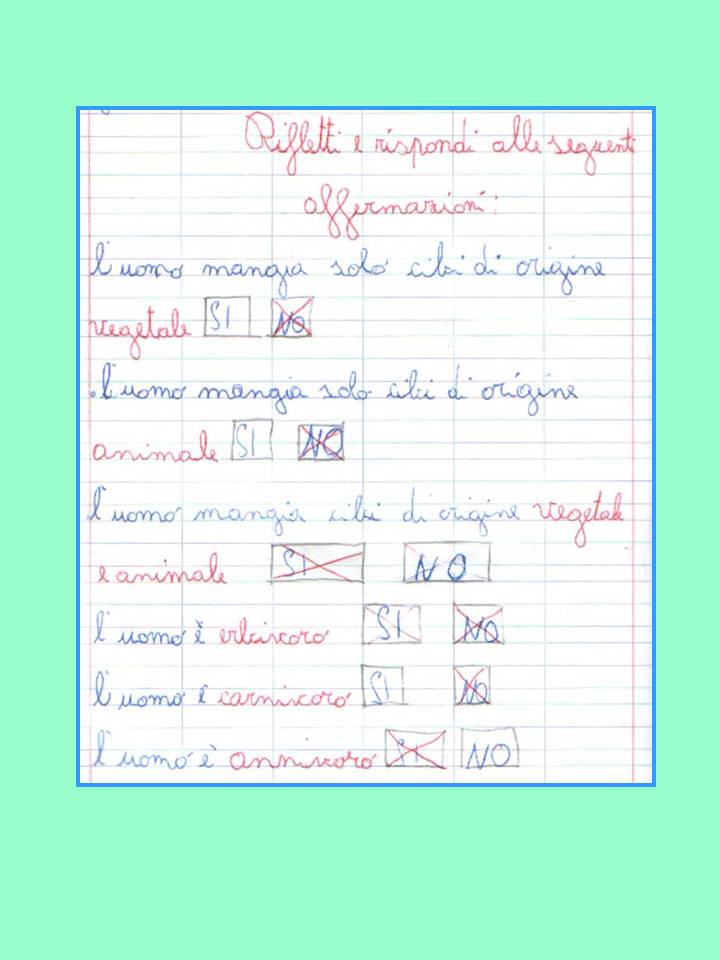 Rifletti e rispondi alle seguenti
affermazioni:
l'uomo mangia solo cibi di origine
vegetale SI NO
l'uomo mangia solo cibi di origine
animale SI NO
l'uomo mangia cibi di origine vegetale
e animale SI NO
l'uomo è erbivoro SI NO
l'uomo è carnivoro SI NO
l'uomo è onnivoro SI NO